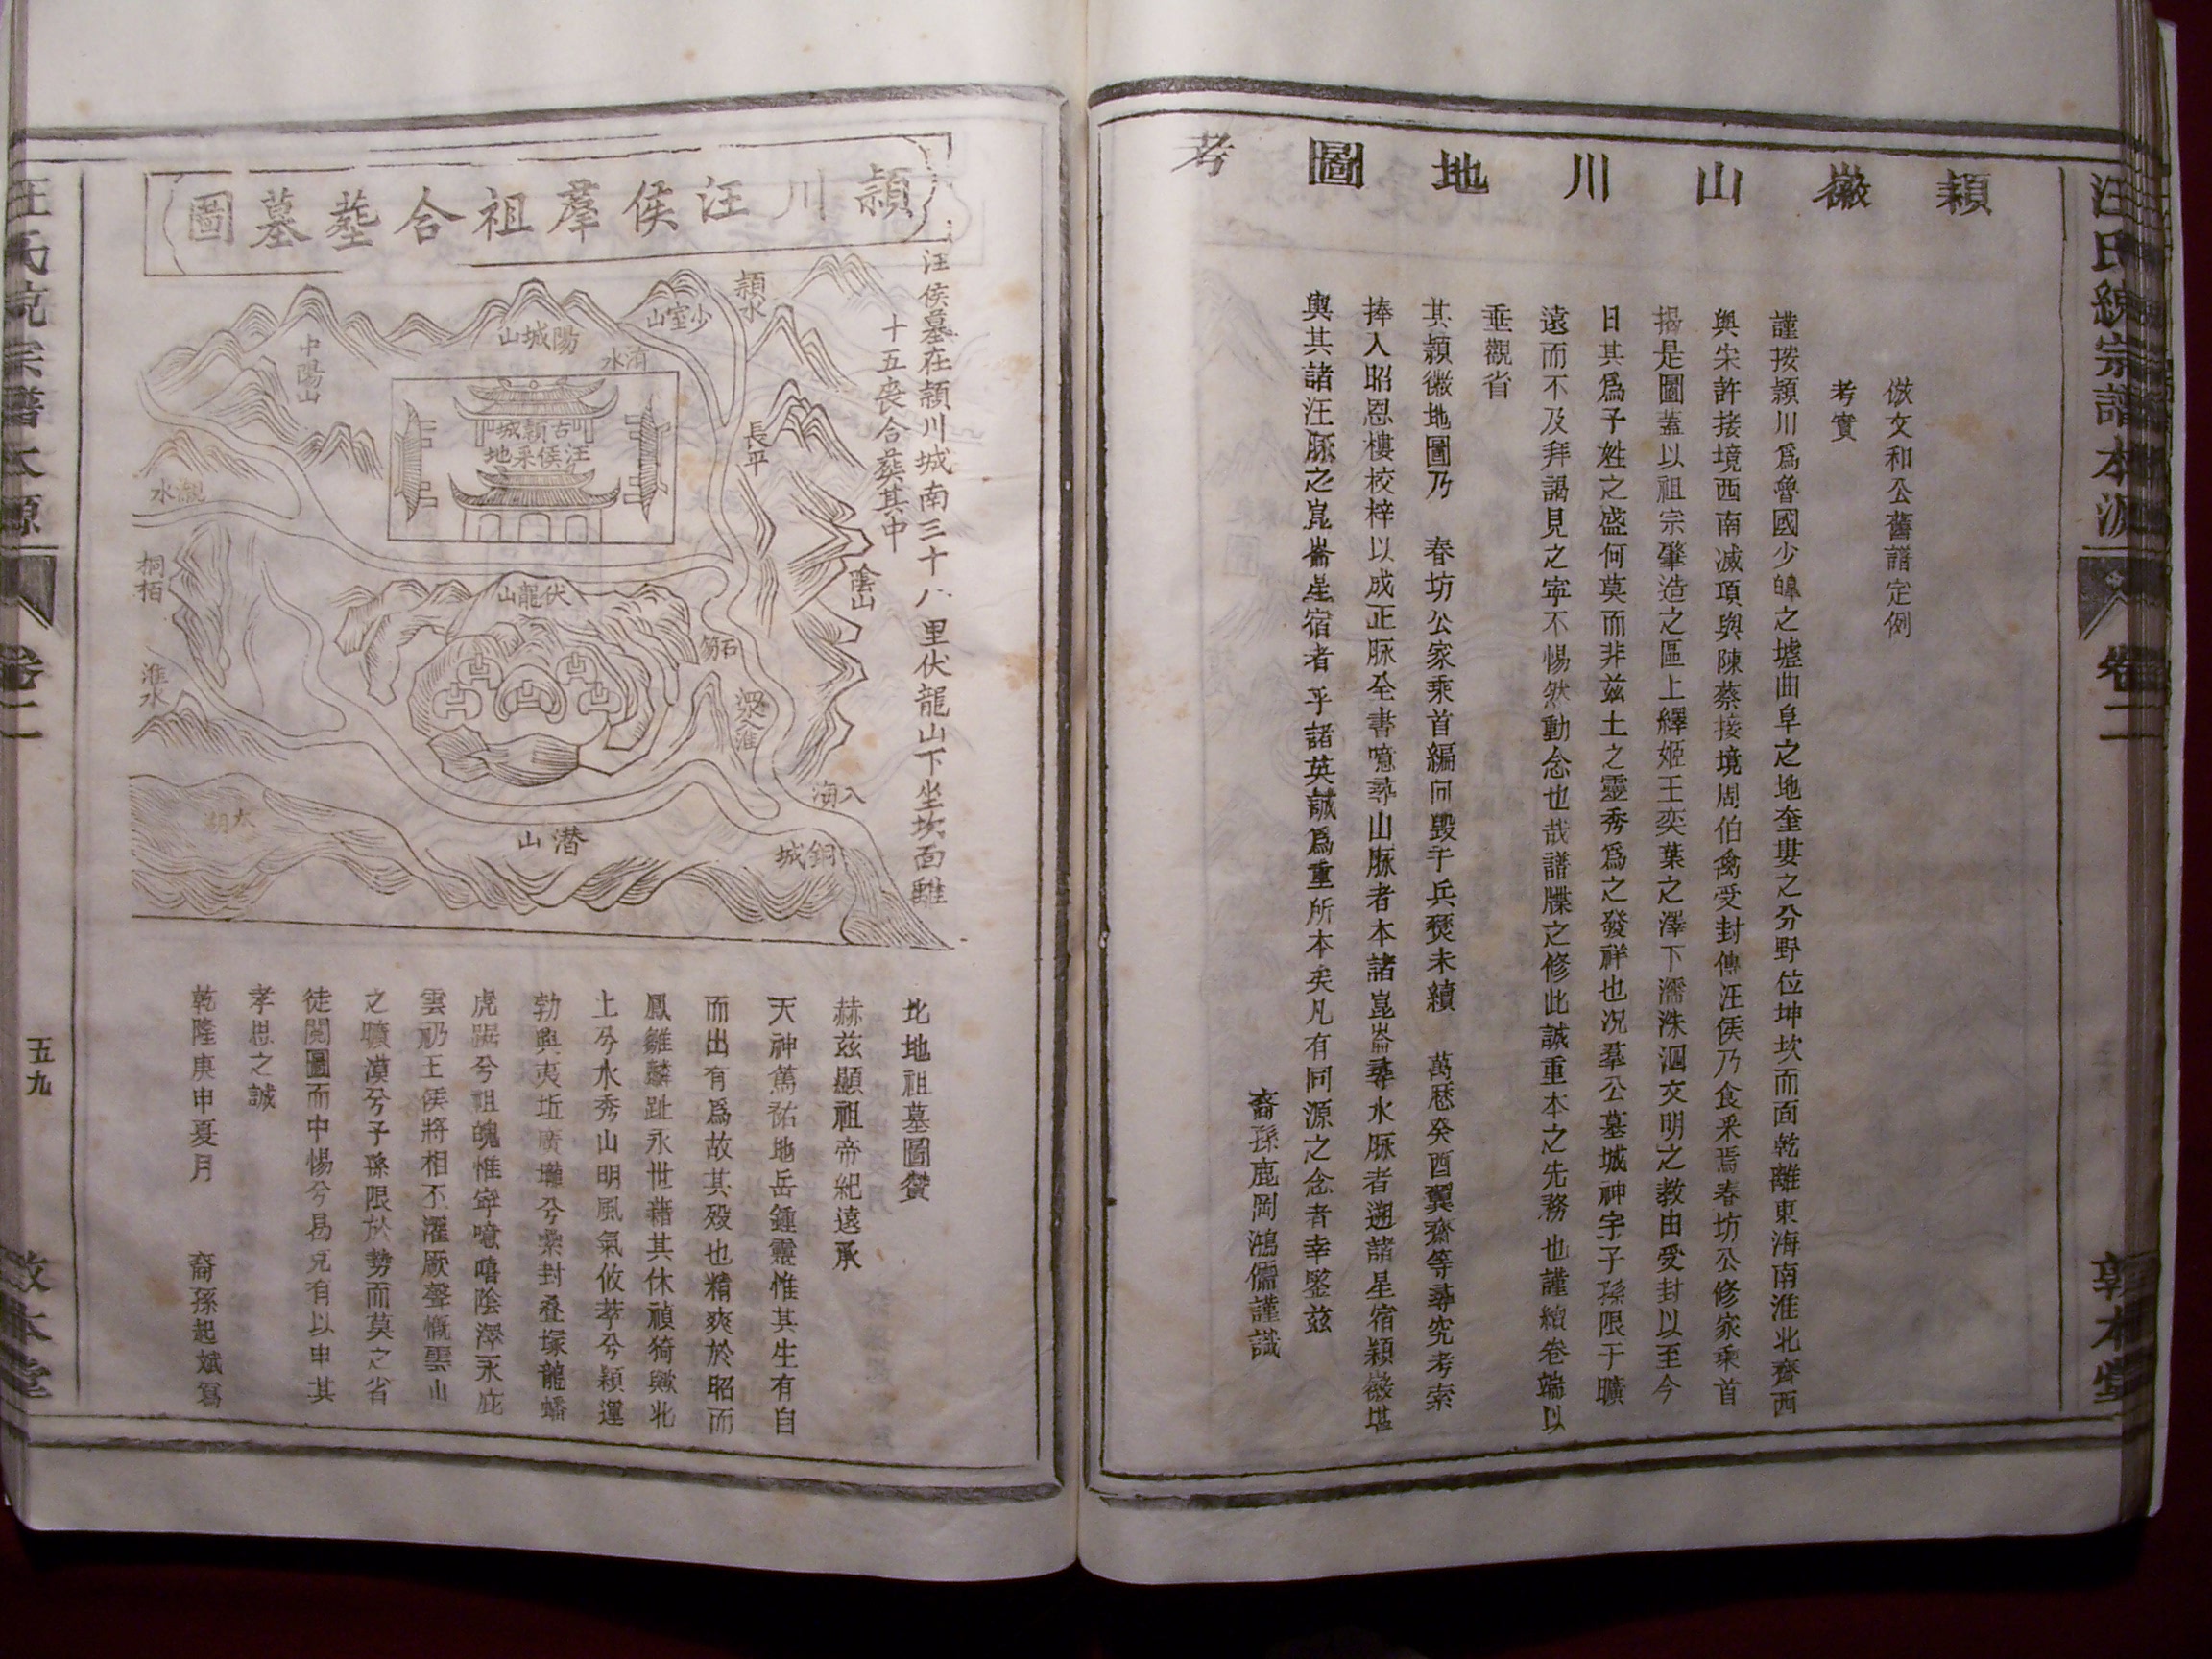 汪氏統宗譜本源
卷二
敦本堂
潁徽山川地圖考
倣文和公舊譜定例
考實
謹按潁川為魯國少皥之墟曲阜之地奎婁之分野位坤坎而面乾離東海南淮北齊西
與宋許接境西南滅項與陳蔡接境周伯禽受封傳汪侯乃食釆焉春坊公修家乘首
揭是圖蓋以祖宗肇造之區上繹姬王奕葉之澤下濡洙泗文明之教由受封以至今
日其爲子姓之盛何莫而非兹土之靈秀爲之發祥也况羣公墓城神宇子孫限于曠
遠而不及拜謁見之寜不惕然動念也哉譜牒之修此誠重本之先務也謹繪卷端以
垂觀省
其潁徽地圖乃 春坊公家乘首編囘毀于兵燹未續 萬歷癸酉翼齋等尋究考索
捧入昭恩樓校梓以成正脉全書噫尋山脉者本諸崑崙尋水脉者遡諸星宿潁徽堪
輿其諸汪脉之崑崙星宿者乎諸英誠爲重所本矣凡有同源之念者幸鑒兹
裔孫鹿岡鴻儒謹識
潁川汪侯羣祖合塟墓圖
汪侯墓在潁川城南三十八里伏龍山下坐坎面離
十五喪合葬其中
潁水
少室山
陽城山
中陽山
湇水
古潁城
汪侯釆地
長平
陰山
瀙水
桐栢
淮水
伏龍山
石笏
入海
大湖
潛山
銅城
北地祖墓圖贊
赫兹顯祖帝紀遠承
天神篤祐地岳鍾靈惟其生有自
而出有爲故其歿也精爽於昭而
鳳雛麟趾永世藉其休禎猗歟北
上兮水秀山明風氣攸萃兮潁運
勃興夷坵廣壠兮纍封叠塚龍蟠
虎踞兮祖魄惟寜噫嘻陰澤永庇
雲礽王侯將相丕濯厥聲慨雲山
之曠漠兮子孫限於勢而莫之省
徒閱圖而中惕兮曷克有以申其
孝思之誠
乾隆庚申夏月 裔孫起斌寫
汪氏統宗譜本源
卷二
五九
敦本堂